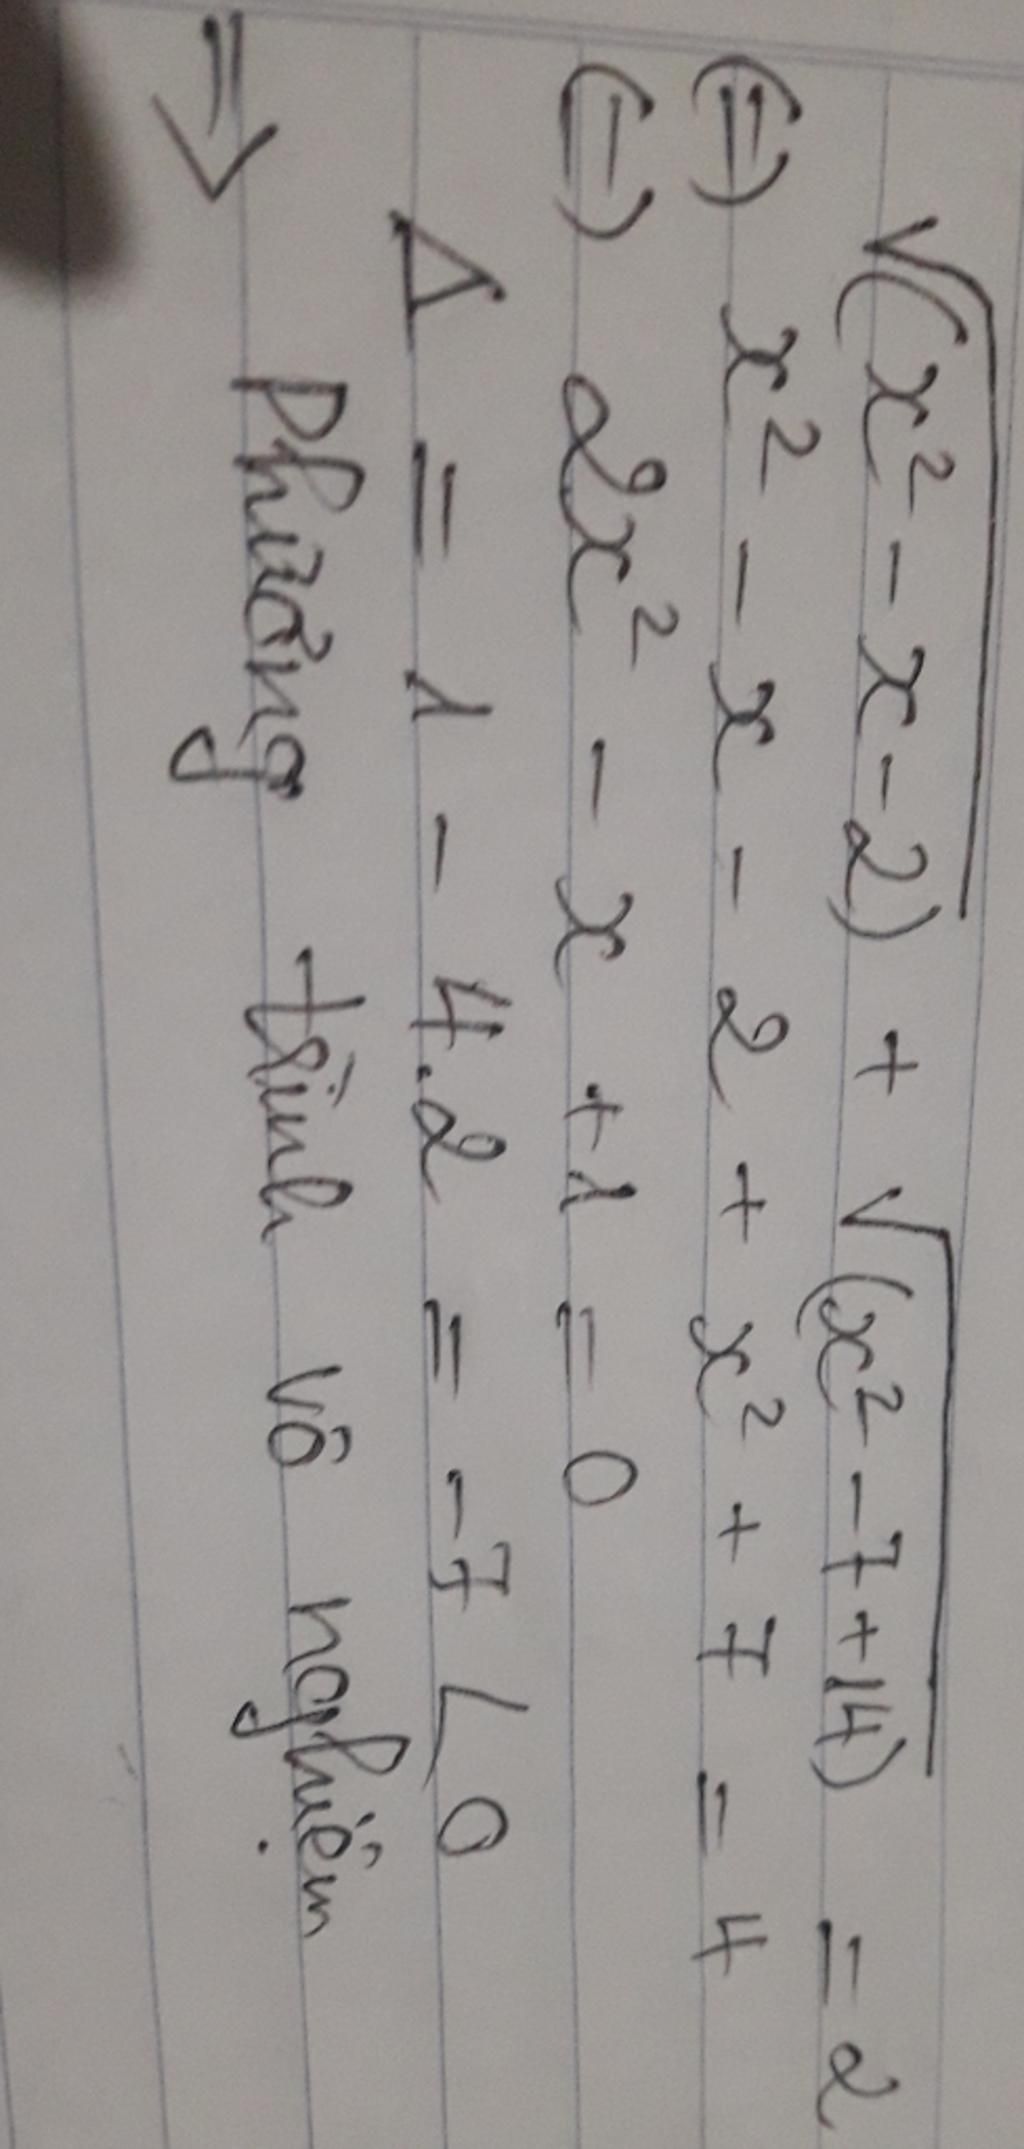 √(x² - x - 2) + √(x² - 7 + 14) = 2
(=) x² - x - 2 + x² + 7 = 4
(=) 2x² - x + 1 = 0
Δ = 1 - 4.2 = -7 < 0
=> Phương trình vô nghiệm